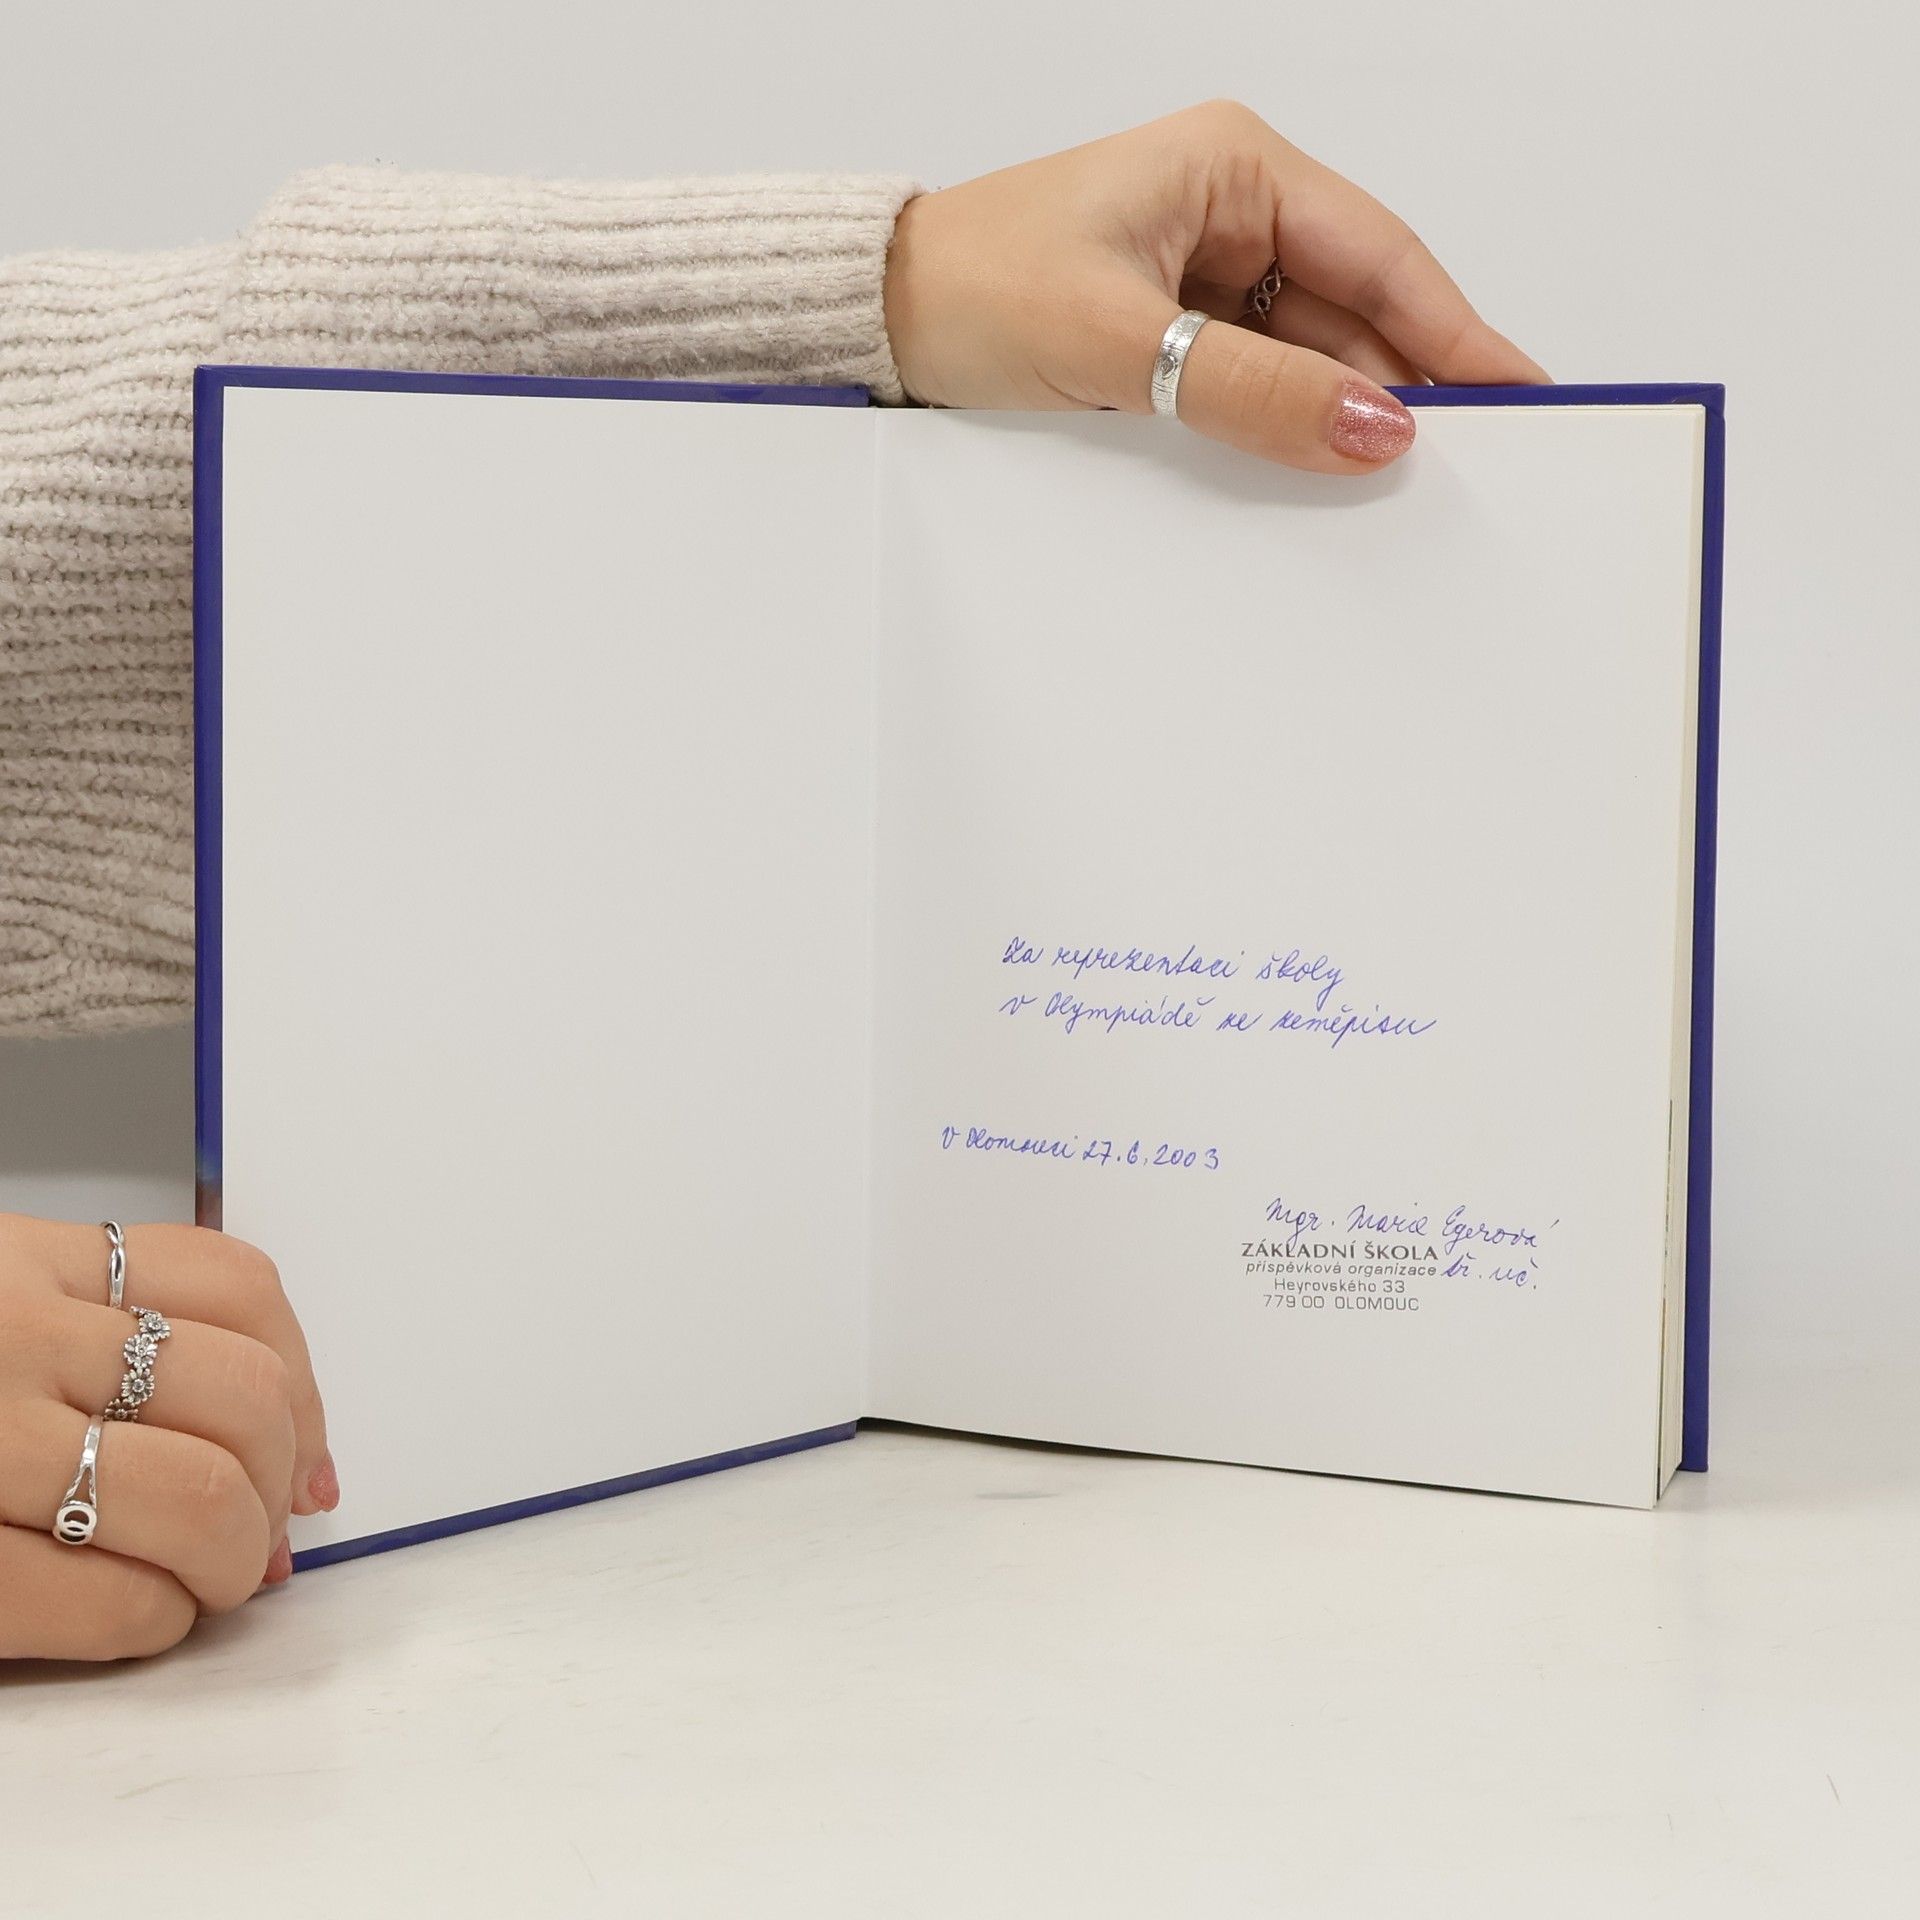 Za reprezentaci školy
v Olympiádě ze zeměpisu
V Olomouci 27.6.2003
Mgr. Marie Egerová
tř. uč.
ZÁKLADNÍ ŠKOLA
příspěvková organizace
Heyrovského 33
779 00 OLOMOUC